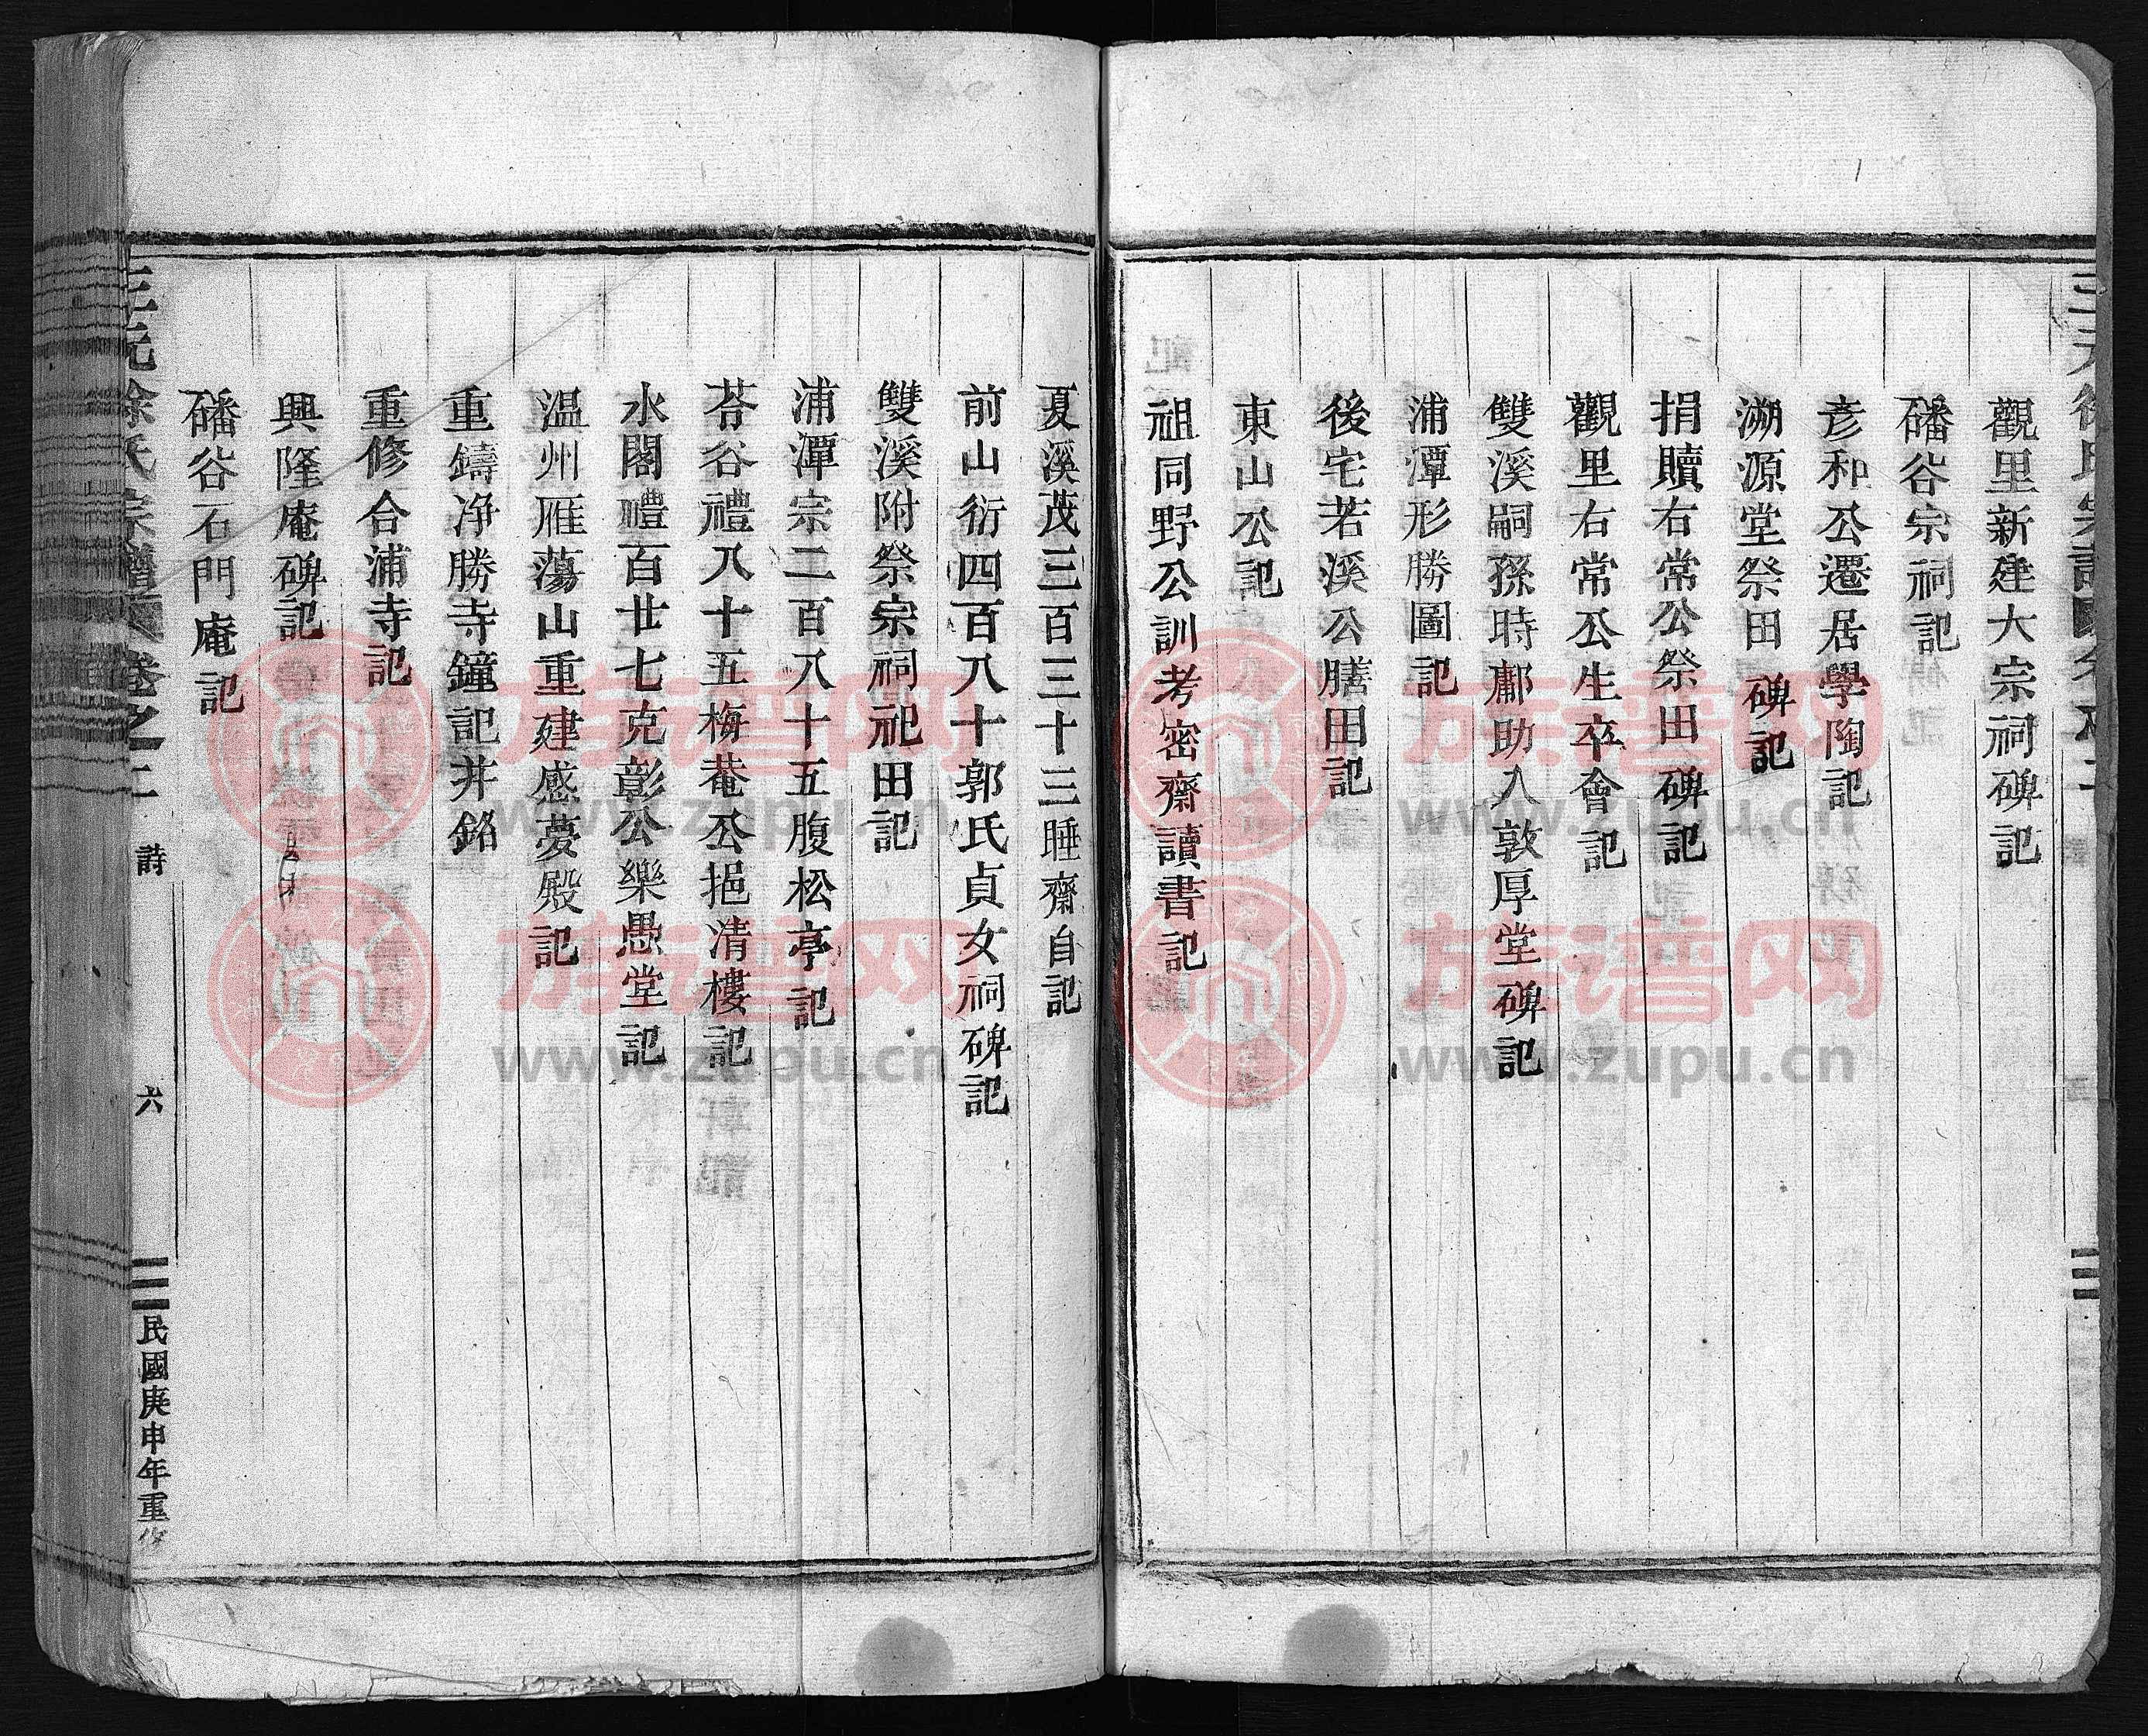 觀里新建大宗祠碑記
磻谷宗祠記
彥和公遷居學陶記
溯源堂祭田碑記
捐贖右常公祭田碑記
觀里右常公生卒會記
雙溪嗣孫時鄘助入敦厚堂碑記
浦潭形勝圖記
後宅若溪公膳田記
東山公記
祖同野公訓考密齋讀書記
夏溪茂三百三十三睡齋自記
前山衍四百八十郭氏貞女祠碑記
雙溪附祭宗祠祀田記
浦潭宗二百八十五腹松亭記
荅谷禮八十五梅菴公挹清樓記
水閣禮百廿七克彰公樂愚堂記
温州雁蕩山重建感夢殿記
重鑄净勝寺鐘記并銘
重修合浦寺記
興隆庵碑記
磻谷石門庵記
徐氏宗譜 卷之二 詩 六 民國庚申年重修
族谱网
www.zupu.cn
族谱网
www.zupu.cn
族谱网
www.zupu.cn
族谱网
www.zupu.cn